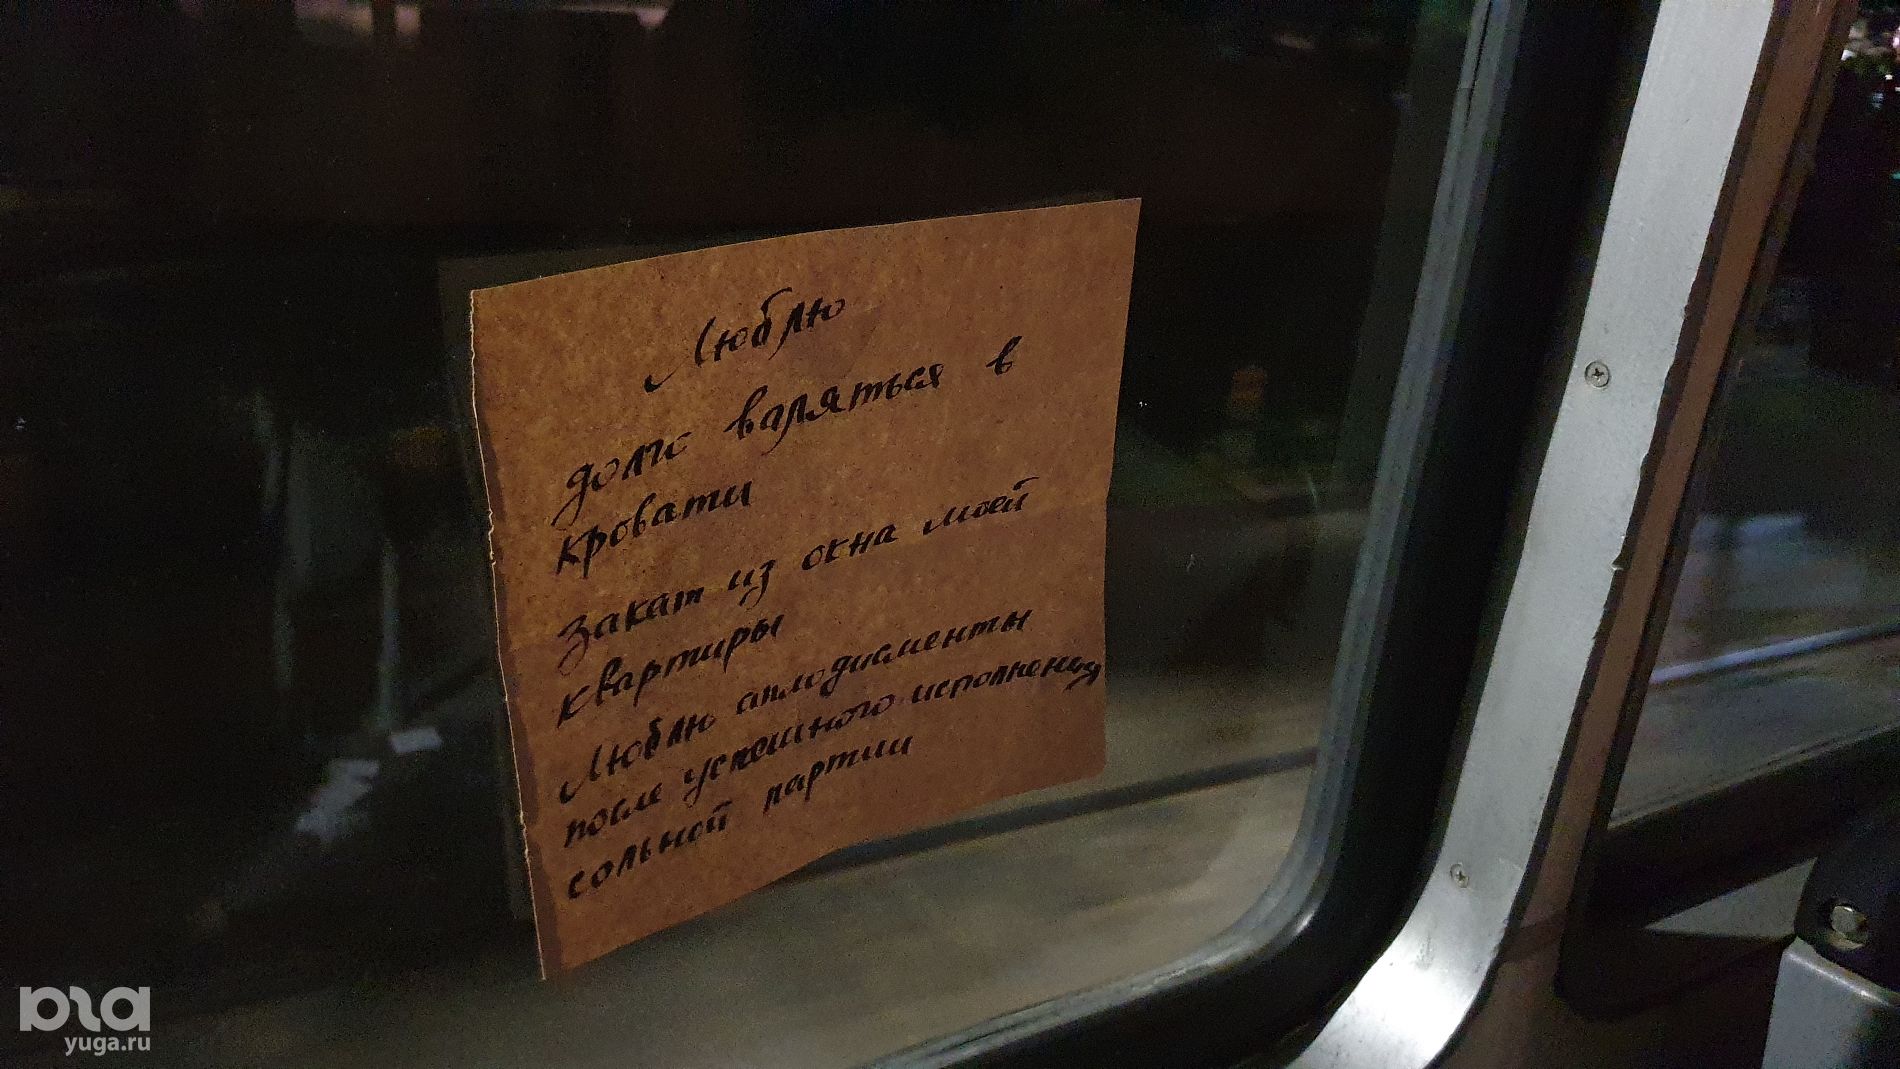 Люблю
долго валяться в
кровати
Закат из окна моей
квартиры
Люблю аплодисменты
после успешного исполнения
сольной партии
yuga.ru